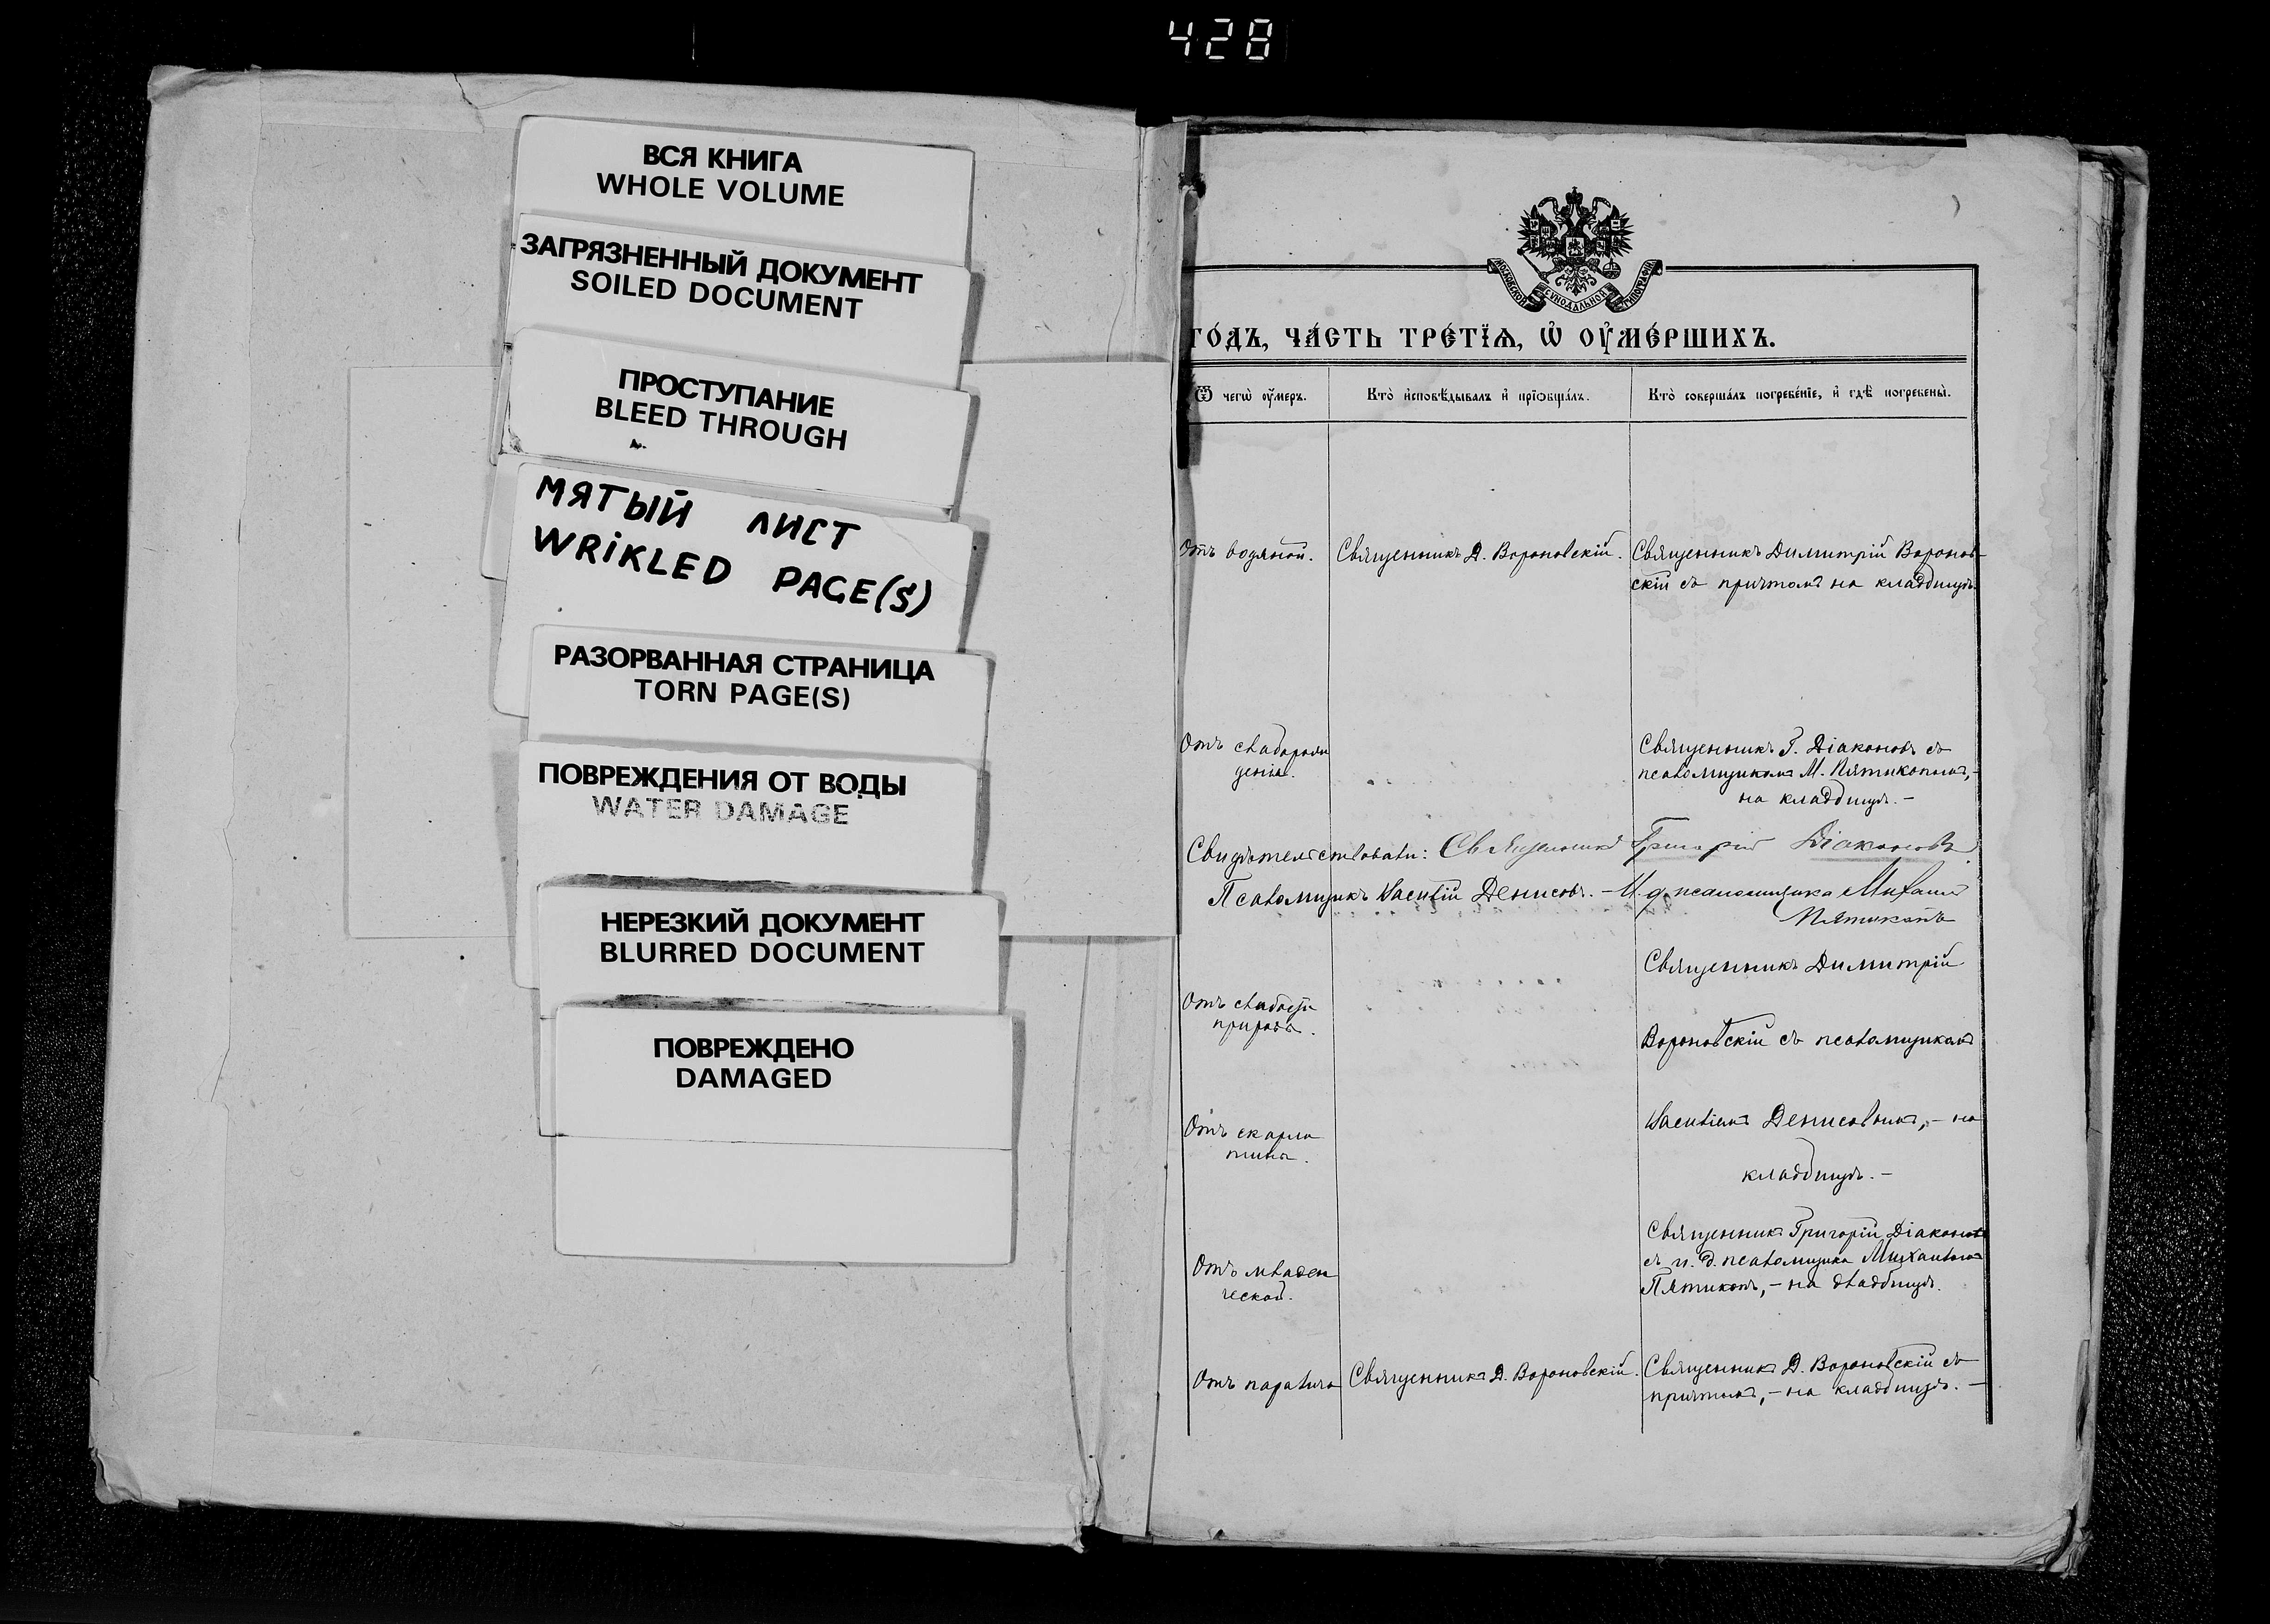 428
ВСЯ КНИГА
WHOLE VOLUME
ЗАГРЯЗНЕННЫЙ ДОКУМЕНТ
SOILED DOCUMENT
ПРОСТУПАНИЕ
BLEED THROUGH
МЯТЫЙ ЛИСТ
WRIKLED PAGE(S)
РАЗОРВАННАЯ СТРАНИЦА
TORN PAGE(S)
ПОВРЕЖДЕНИЯ ОТ ВОДЫ
WATER DAMAGE
НЕРЕЗКИЙ ДОКУМЕНТ
BLURRED DOCUMENT
ПОВРЕЖДЕНО
DAMAGED
МОСКОВСКОЙ СѴНОДАЛЬНОЙ ТИПОГРАФІИ
ГО́ДЪ, ЧА́СТЬ ТРЕ́ТЇѦ, Ѡ҆ ОУ҆МЕ́РШИХЪ.
Ѿ чегѡ̀ оу҆́меръ.
Кто̀ и҆сповѣ́дывалъ и҆ прїѡбща́лъ.
Кто̀ соверша́лъ погребе́нїе, и҆ гдѣ̀ погребены̀.
Отъ водяной.
Священникъ Д. Вороновскій.
Священникъ Димитрій Воронов-
скій съ причтомъ на кладбищѣ.
Отъ слаборож
денія.
Священникъ Г. Діаконовъ съ
псаломщикомъ М. Пятикопомъ,-
на кладбищѣ.-
Свидѣтельствовали: Священникъ Григорій Діаконовъ
Псаломщикъ Василій Денисовъ. - И. д. псаломщика Михаилъ
Пятикопъ
Священникъ Димитрій
Отъ слабости
природы.
Вороновскій съ псаломщикомъ
Отъ скарла
тины.
Василіемъ Денисовымъ,- на
кладбищѣ.-
Отъ младен
ческой.
Священникъ Григорій Діаконовъ
съ и. д. псаломщика Михаиломъ
Пятикопъ,- на кладбищѣ.
Отъ паралича
Священникъ Д. Вороновскій.
Священникъ Д. Вороновскій съ
причтомъ,- на кладбищѣ.-